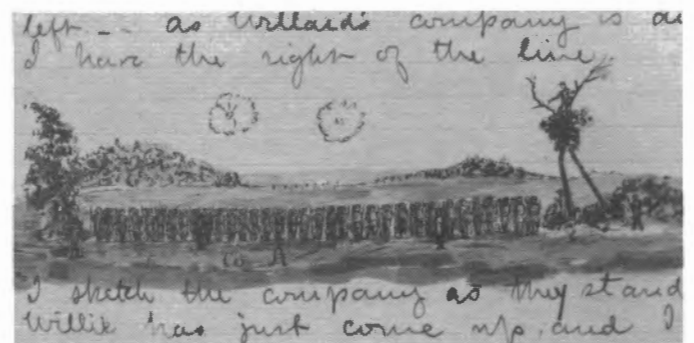 left - - as Willard's company is
I have the right of the line.
Co A
I sketch the company as they stand
Willie has just come up, and I